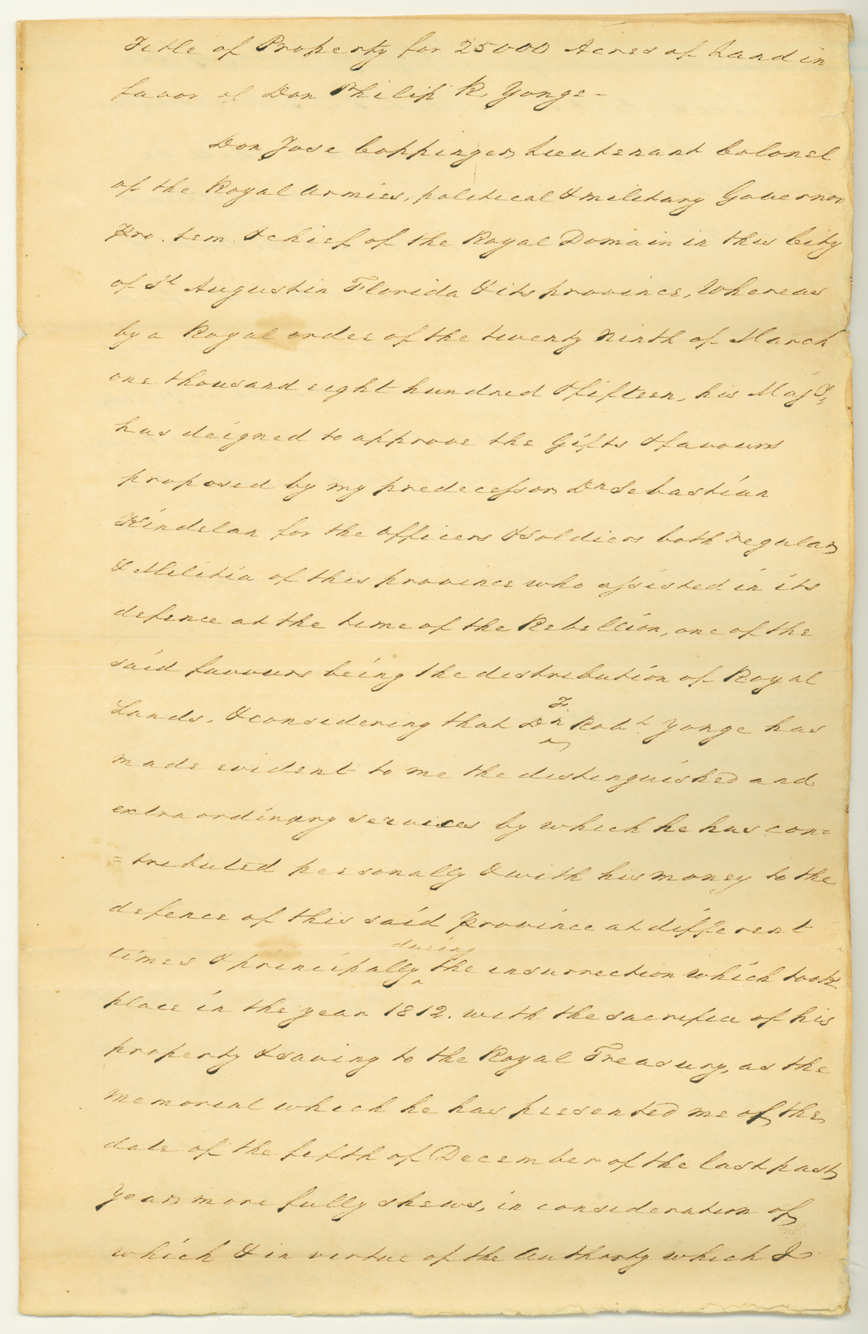 Title of Property for 25000 Acres of Land in
favor of Don Philip R. Yonge -
Don Jose Coppinger Lieutenant Colonel
of the Royal Armies, political & military Governor
Pro. tem & chief of the Royal Domain in this City
of St Augustin Florida & its province, Whereas
by a Royal order of the twenty Ninth of March
one thousand eight hundred & fifteen, his Majty
has deigned to approve the Gifts & favours
proposed by my predecessor Dn Sebastian
Kindelan for the officers & soldiers both regular
& Militia of this province who assisted in its
defence at the time of the Rebellion, one of the
said favours being the distribution of Royal
Lands. & considering that Dn F. Robt Yonge has
made evident to me the distinguished and
extraordinary services by which he has con=
=tributed personally & with his money to the
defence of this said Province at different
times & principally during the insurrection which took
place in the year 1812. with the sacrifice of his
property & saving to the Royal Treasury, as the
memorial which he has presented me of the
date of the fifth of December of the last past
year more fully shews, in consideration of
which & in virtue of the authority which I